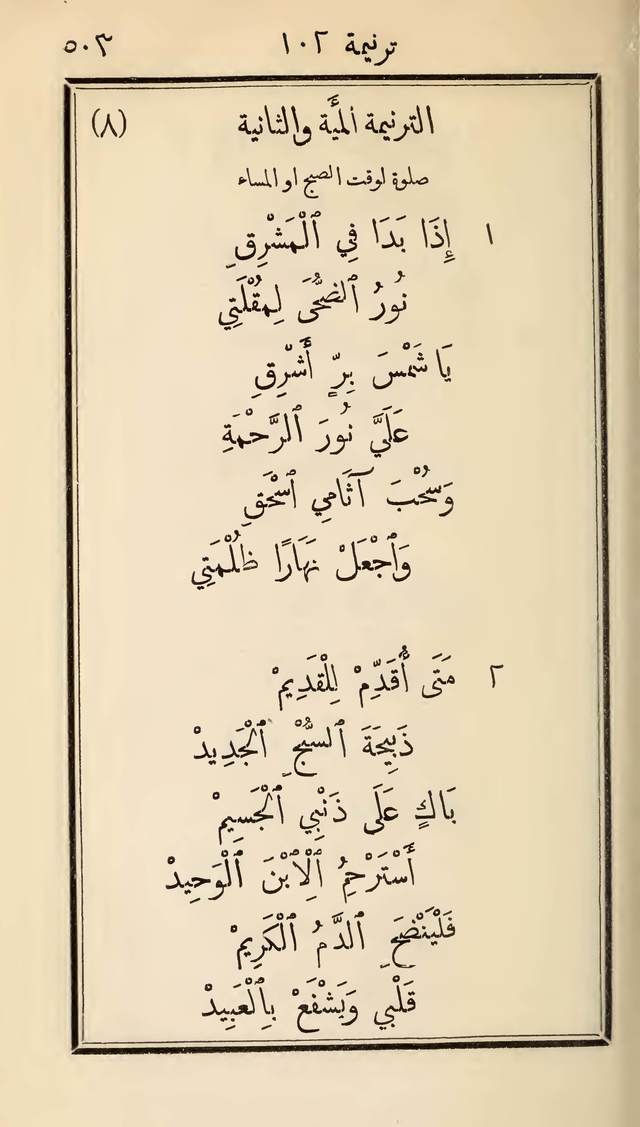 ترنيمة ١٠٢ ٥٠٣
الترنيمة ألميَّة والثانية (٨)
صلوة لوقت الصبح او المساء
١ إِذَا بَدَا فِي ٱلْمَشْرِقِ
نُورُ ٱلضُّحَى لِمُقْلَتِي
يَا شَمْسَ بِرٍّ أَشْرِقِ
عَلَيَّ نُورَ ٱلرَّحْمَةِ
وَسُحْبَ آثَامِي ٱسْحَقِ
وَٱجْعَلْ نَهَارًا ظُلْمَتِي
٢ مَتَى أُقَدِّمْ لِلْقَدِيمْ
ذَبِيحَةَ ٱلسُّبْحِ ٱلْجَدِيدْ
بَاكٍ عَلَى ذَنْبِي ٱلْجَسِيمْ
أَسْتَرْحِمُ ٱلِٱبْنَ ٱلْوَحِيدْ
فَلْيَنْضَحِ ٱلدَّمُ ٱلْكَرِيمْ
قَلْبِي وَيَشْفَعْ بِٱلْعَبِيدْ